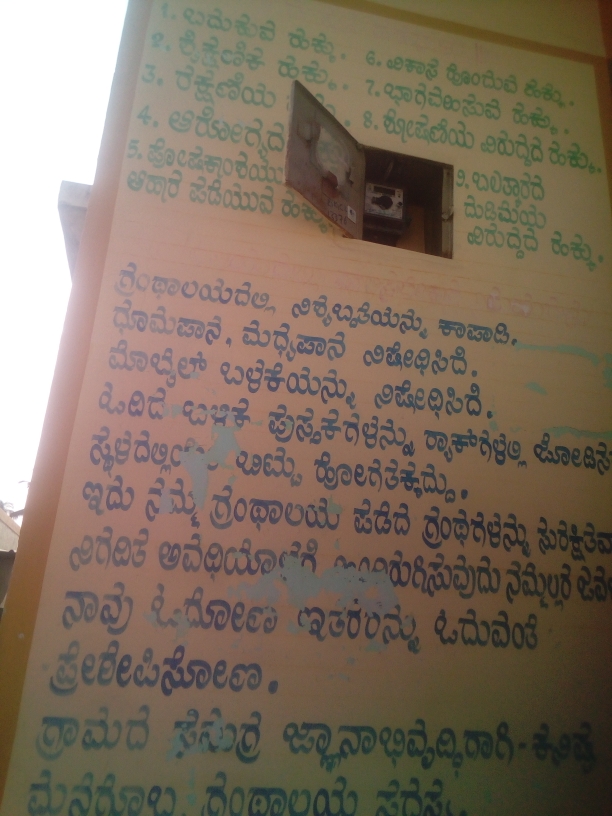 1. ಬದುಕುವ ಹಕ್ಕು.
2. ಶೈಕ್ಷಣಿಕ ಹಕ್ಕು.
3. ರಕ್ಷಣೆಯ
4. ಆರೋಗ್ಯದ
5. ಪೋಷಕಾಂಶಯು
ಆಹಾರ ಪಡೆಯುವ ಹಕ್ಕು
6. ವಿಕಾಸ ಹೊಂದುವ ಹಕ್ಕು.
7. ಭಾಗವಹಿಸುವ ಹಕ್ಕು.
8. ಶೋಷಣೆಯ ವಿರುದ್ಧದ ಹಕ್ಕು.
9. ಬಲಿತ್ಕಾರದ
ದುಡಿಮೆಯ
ವಿರುದ್ಧದ ಹಕ್ಕು.
ಗ್ರಂಥಾಲಯದಲ್ಲಿ ನಿಶ್ಯಬ್ದತೆಯನ್ನು ಕಾಪಾಡಿ.
ಧೂಮಪಾನ, ಮಧ್ಯಪಾನ ನಿಷೇಧಿಸಿದೆ.
ಮೊಬೈಲ್ ಬಳಕೆಯನ್ನು ನಿಷೇಧಿಸಿದೆ.
ಓದಿದ ಬಳಿಕ ಪುಸ್ತಕಗಳನ್ನು ರ‍್ಯಾಕ್‌ಗಳಲ್ಲಿ ಜೋಡಿಸಿ
ಸ್ಥಳದಲ್ಲಿಯೇ ಬಿಮ್ಮೆ ಹೋಗತಕ್ಕದ್ದು.
ಇದು ನಮ್ಮ ಗ್ರಂಥಾಲಯ ಪಡೆದ ಗ್ರಂಥಗಳನ್ನು ಸುರಕ್ಷಿತವಾ
ನಿಗದಿತ ಅವಧಿಯೊಳಗೆ ಹಿಂದಿರುಗಿಸುವುದು ನಮ್ಮೆಲ್ಲರ
ನಾವು ಓದೋಣ ಇತರರನ್ನು ಓದುವಂತೆ
ಪ್ರೇರೇಪಿಸೋಣ.
ಗ್ರಾಮದ ಸಮಗ್ರ ಜ್ಞಾನಾಭಿವೃದ್ಧಿಗಾಗಿ - ಕನಿಷ್ಠ
ಮನೆಗೊಬ್ಬ ಗ್ರಂಥಾಲಯ ಸದಸ್ಯ.